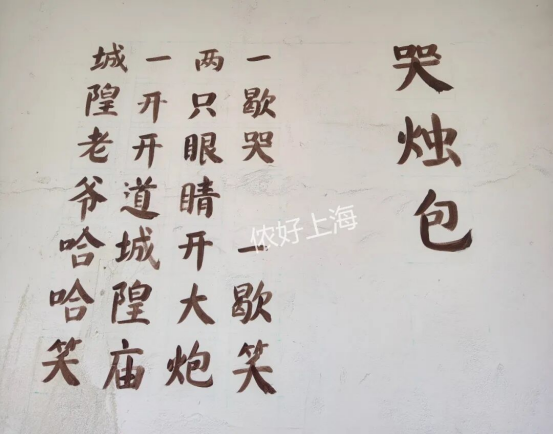 哭烛包
一歇哭 一歇笑
两只眼睛开大炮
一开开道城隍庙
城隍老爷哈哈笑
侬好上海